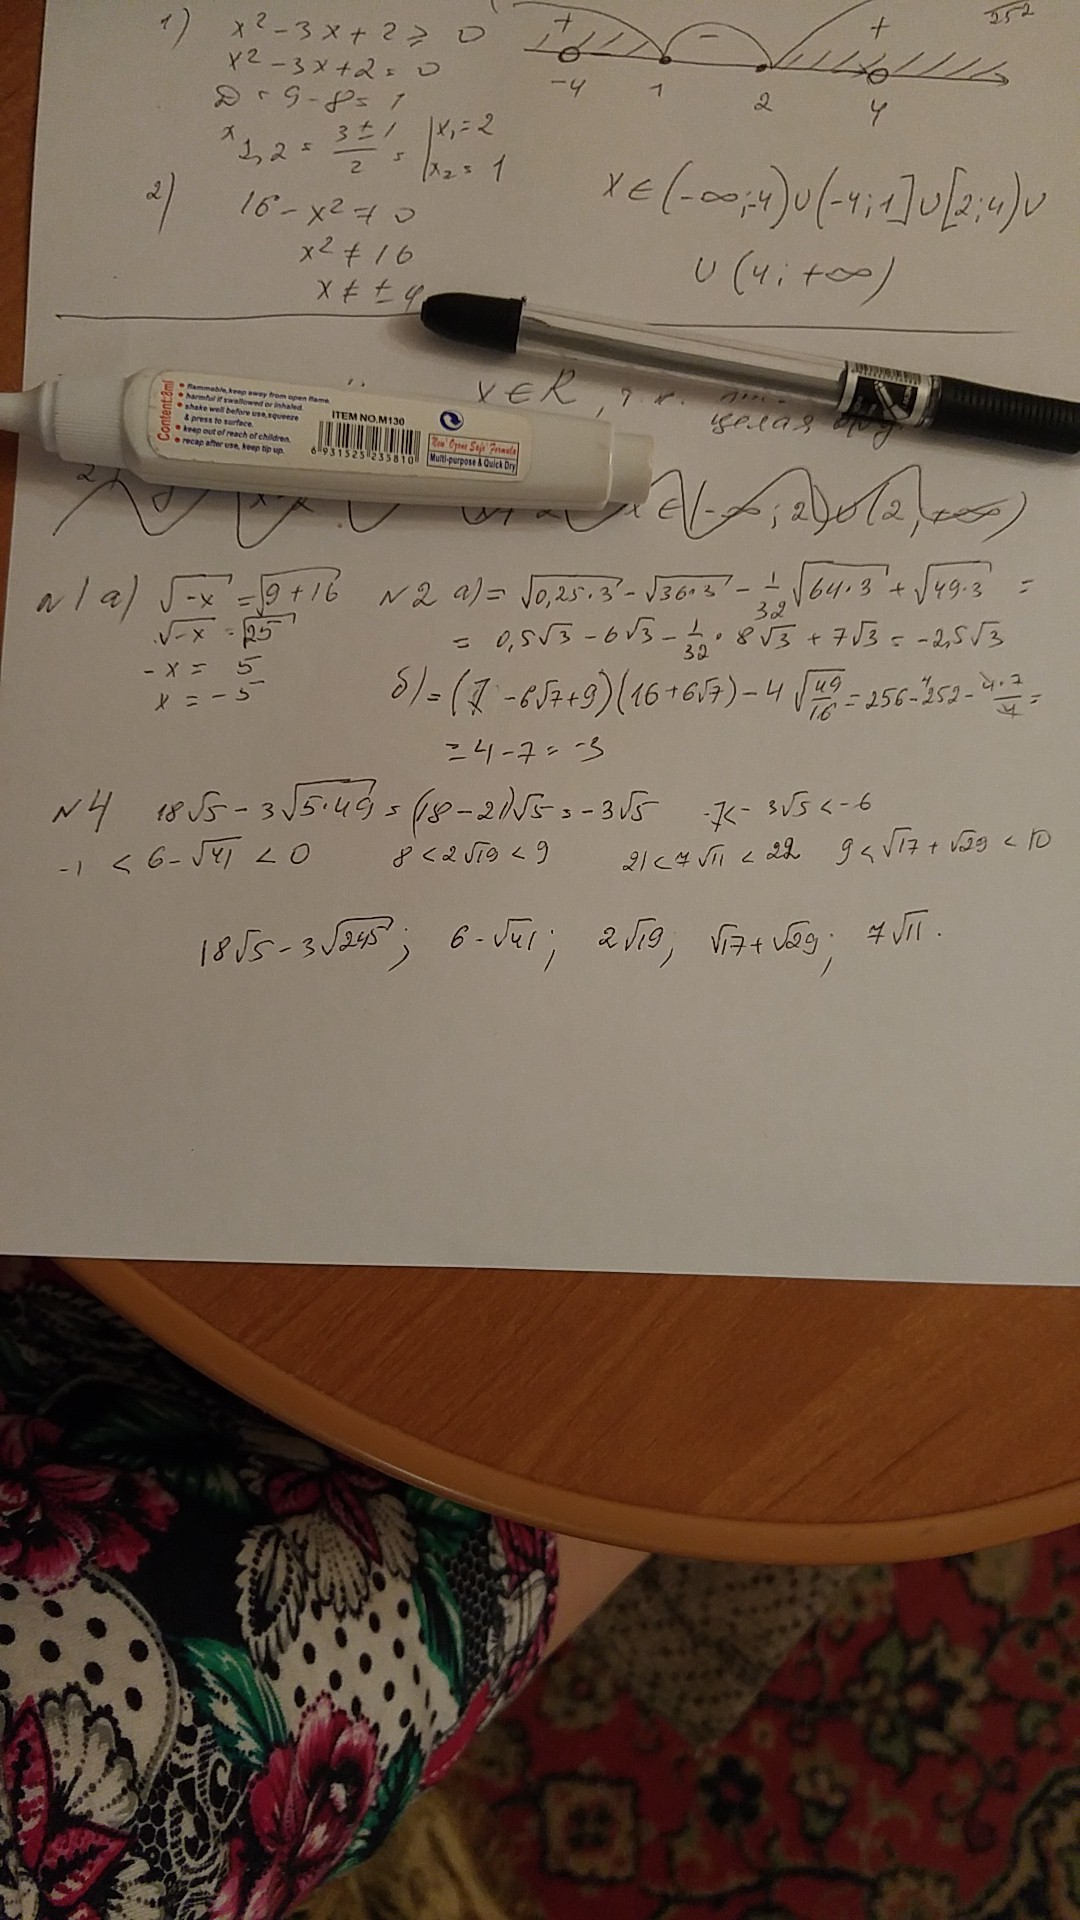 1) x² - 3x + 2 ≥ 0
x² - 3x + 2 = 0
D = 9 - 8 = 1
x₁,₂ = (3 ± 1)/2 = | x₁ = 2
x₂ = 1
+ - +
-4 1 2 4
2) 16 - x² ≠ 0
x² ≠ 16
x ≠ ± 4
x ∈ (-∞; -4) ∪ (-4; 1] ∪ [2; 4) ∪
∪ (4; +∞)
x ∈ R, т.к.
целая
Content: 8ml
• flammable, keep away from open flame.
• harmful if swallowed or inhaled.
• shake well before use, squeeze
& press to surface.
• keep out of reach of children.
• recap after use, keep tip up.
ITEM NO.M130
6 931525 235810
New' Ozone Safe' Formula
Multi-purpose & Quick Dry
x ∈ (-∞; 2) ∪ (2, +∞)
N1 а) √-x = √9 + 16
√-x = √25
-x = 5
x = -5
N2 а) = √0,25·3 - √36·3 - 1/32 √64·3 + √49·3 =
= 0,5√3 - 6√3 - 1/32 · 8√3 + 7√3 = -2,5√3
б) = (7 - 6√7 + 9)(16 + 6√7) - 4 √49/16 = 256 - 252 - 4·7/4 =
= 4 - 7 = -3
N4 18√5 - 3√5·49 = (18 - 21)√5 = -3√5 -7 < -3√5 < -6
-1 < 6 - √41 < 0 8 < 2√19 < 9 21 < 7√11 < 22 9 < √17 + √29 < 10
18√5 - 3√245; 6 - √41; 2√19; √17 + √29; 7√11.